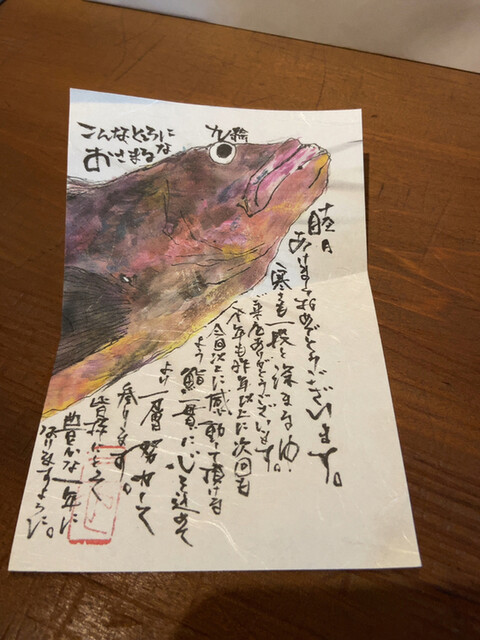 こんなところに
おさまるな
九絵
睦月
あけましておめでとうございます。
寒さも一段と深まる中
ご来店ありがとうございます。
今年も昨年以上に次回も
今回以上に感動して頂ける
よう 鮨一貫に心を込めて
より一層努力して
参ります。
皆様にとって
豊かな一年に
なりますように。